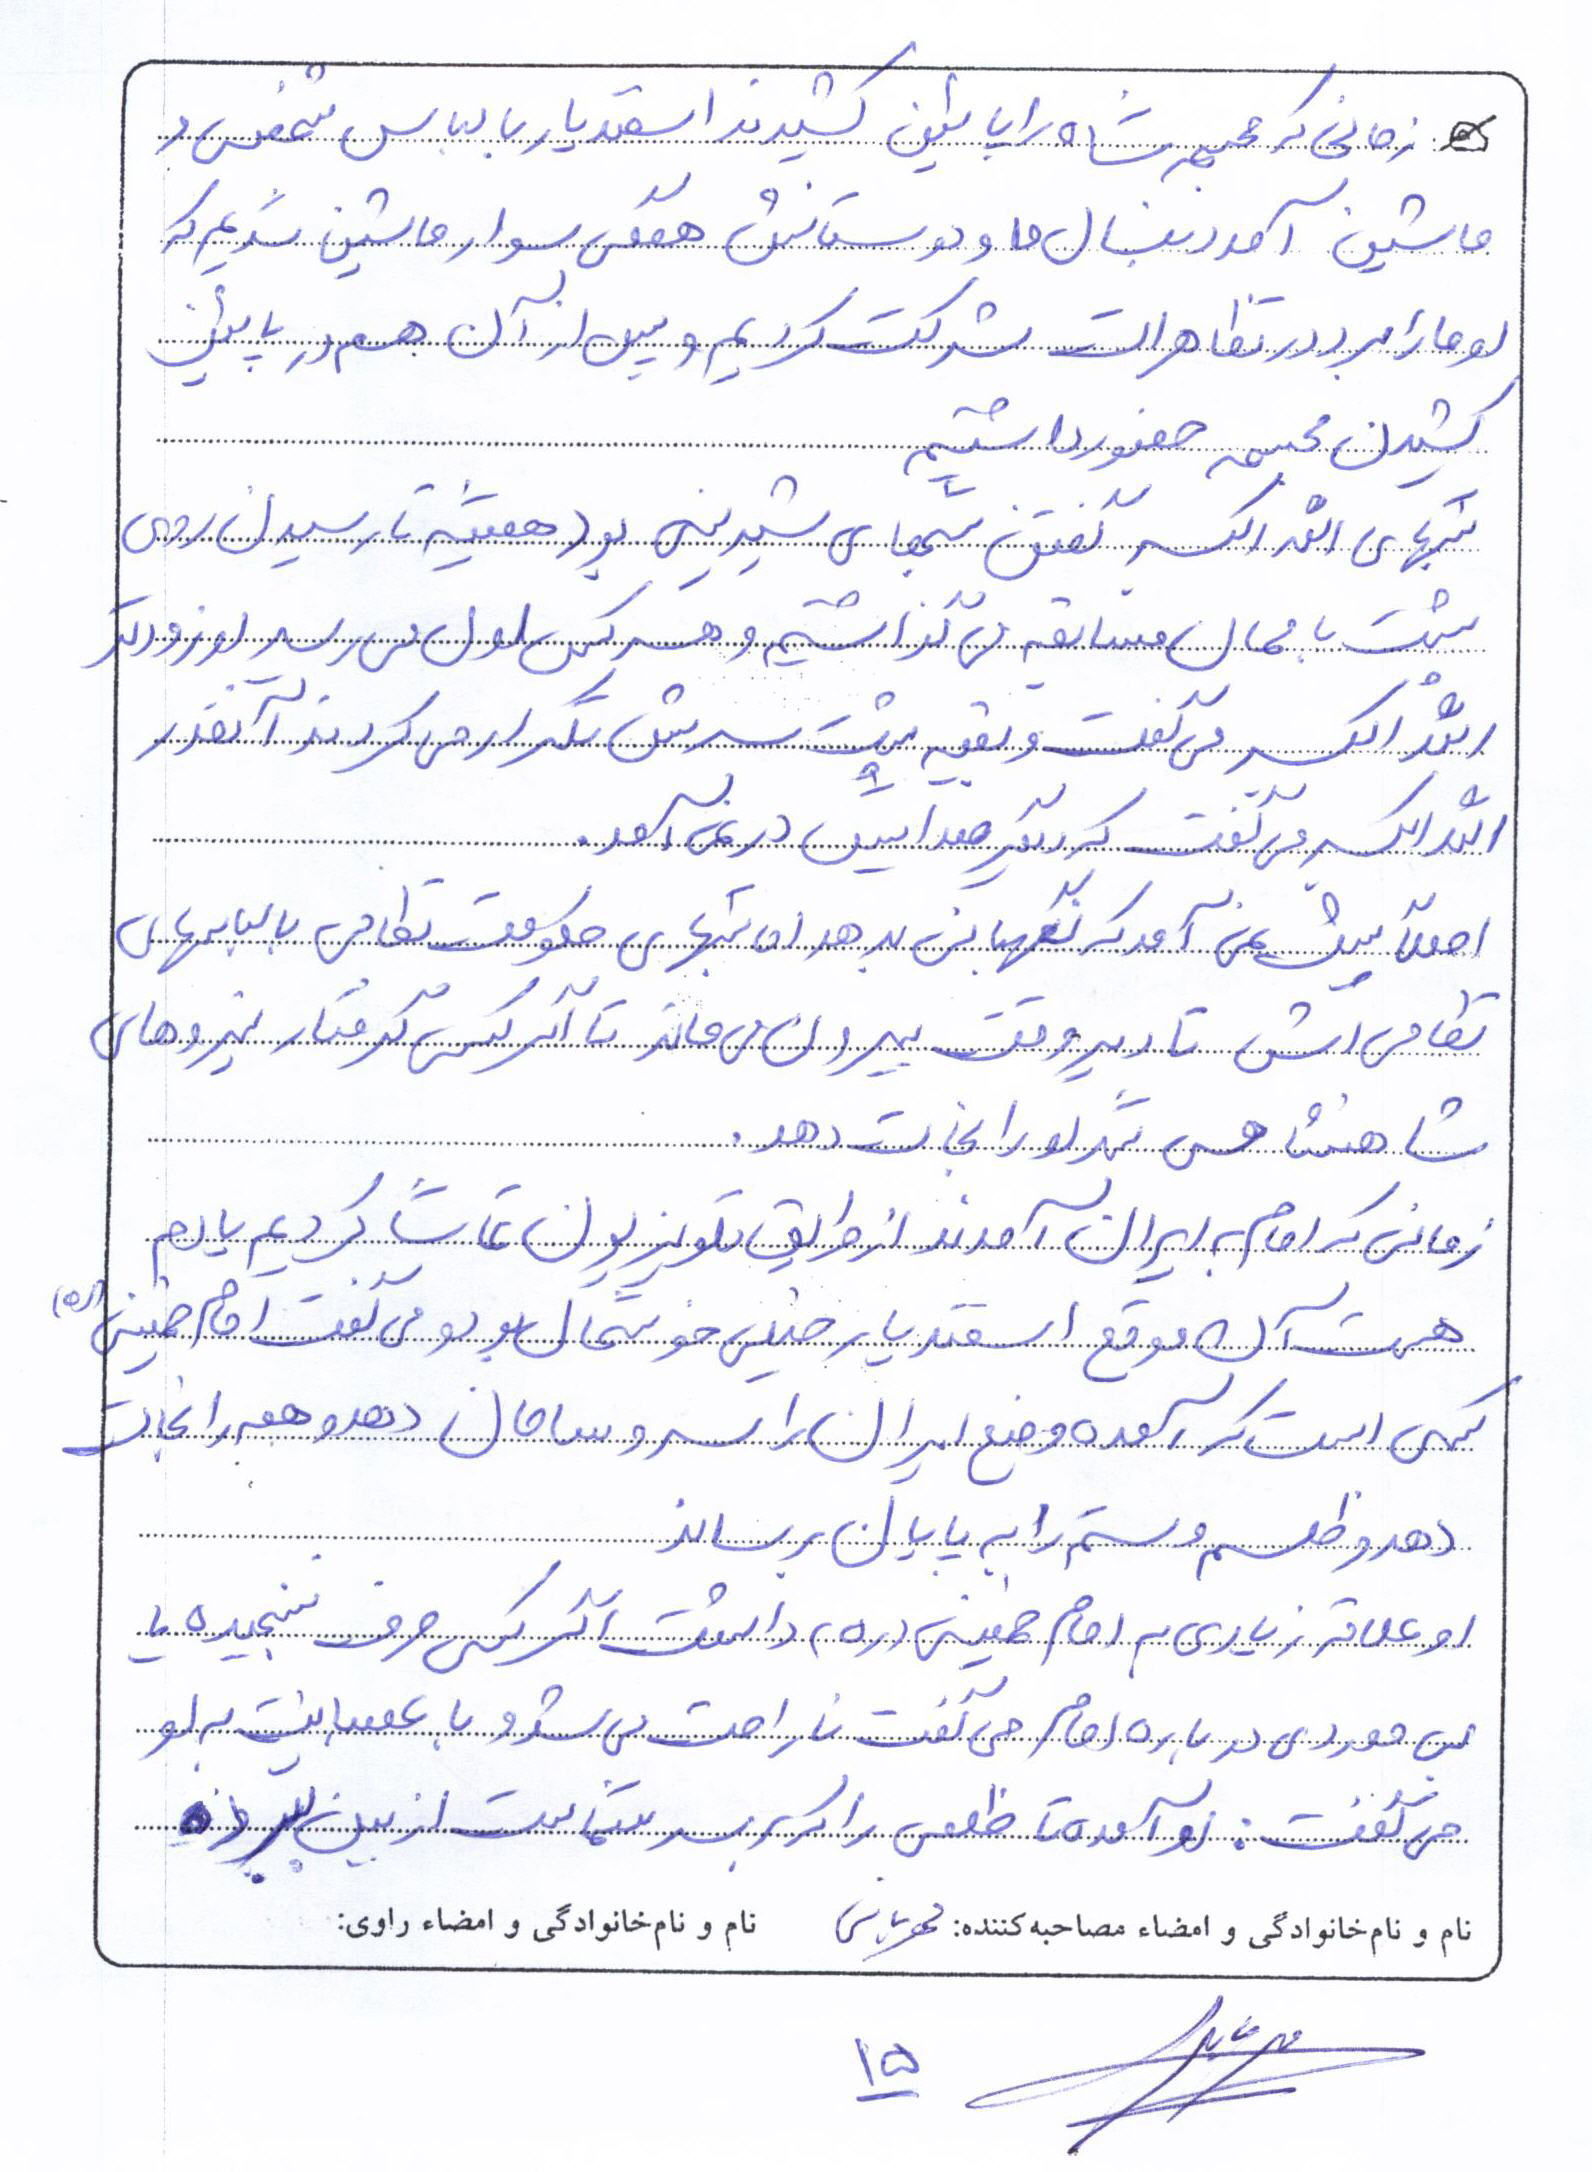 زمانی که مجسمه شاه را پایین کشیدند اسفندیار با لباس شخصی و
ماشین آمد دنبال ما و دوستانش همگی سوار ماشین شدیم که
او ما را برد در تظاهرات شرکت کردیم و پس از آن هم در پایین
کشیدن مجسمه حضور داشتیم
شبهای الله اکبر گفتن شبهای شیرینی بود همیشه تا رسیدن روی
پشت بام حال مسابقه می گذاشتیم و هر کس اول می رسید او زودتر
الله اکبر می گفت و بقیه پشت سرش تکرار می کردند آنقدر
الله اکبر می گفت که دیگر صدایش در نمی آمد.
اصلاً پیش نمی آمد که نگهبانی بدهد اما شبهای حکومت نظامی با لباسهای
نظامی اش تا دیر وقت بیرون می ماند تا اگر کسی گرفتار نیروهای
شاهنشاهی شد او را نجات دهد.
زمانی که امام به ایران آمدند از طریق تلویزیون تماشا کردیم یادم
هست آن موقع اسفندیار خیلی خوشحال بود و می گفت امام خمینی (ره)
کسی است که آمده وضع ایران را سر و سامان دهد و همه را نجات
دهد و ظلم و ستم را به پایان برساند
او علاقه زیادی به امام خمینی (ره) داشت اگر کسی حرف نسنجیده یا
بی موردی درباره امام می گفت ناراحت می شد و با عصبانیت به او
می گفت: او آمده تا ظلمی را که بر سر شماست از بین ببرد
نام و نام خانوادگی و امضاء مصاحبه کننده: نام و نام خانوادگی و امضاء راوی:
۱۵